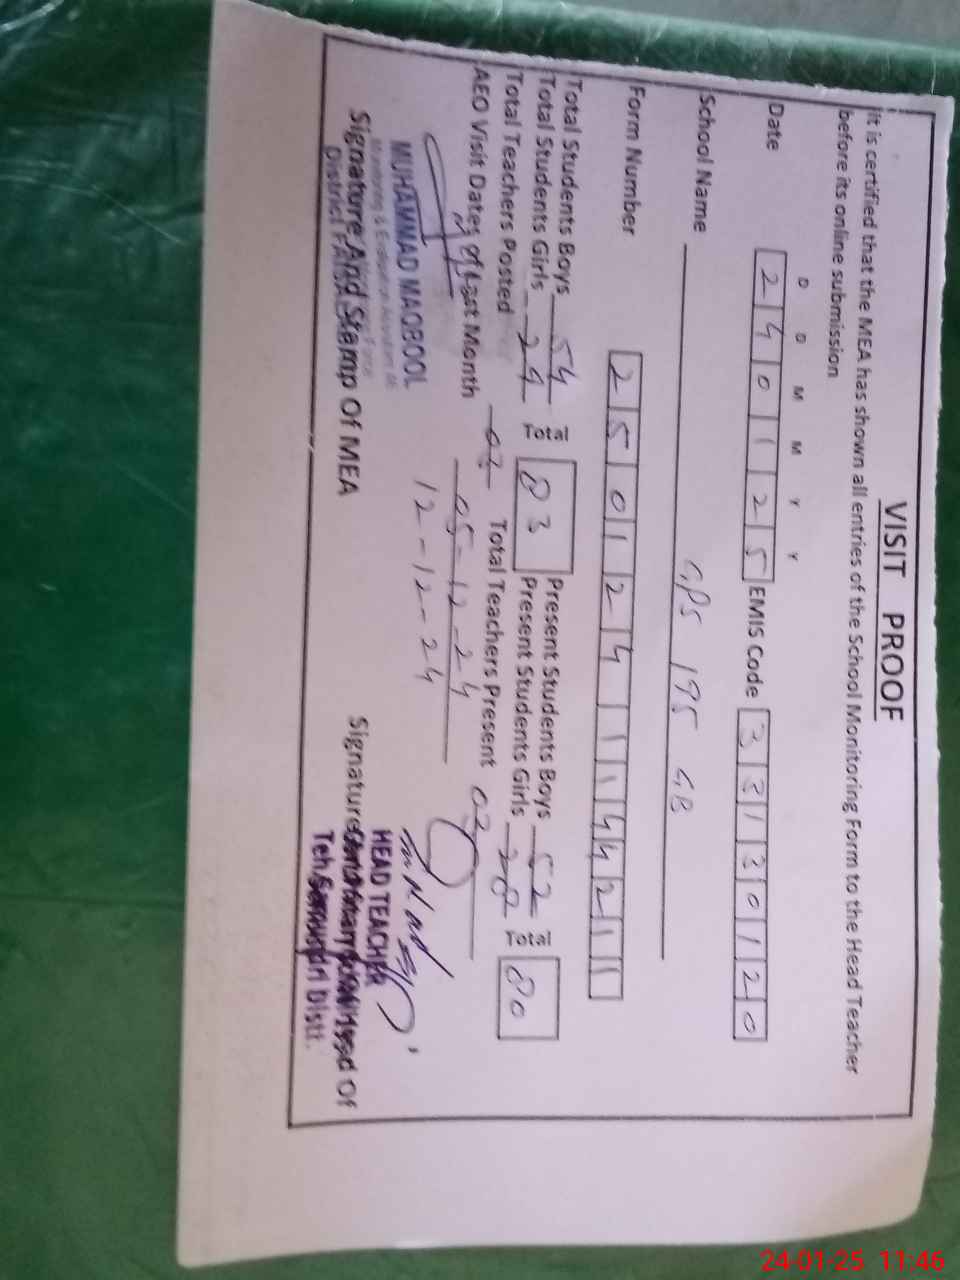 VISIT PROOF
It is certified that the MEA has shown all entries of the School Monitoring Form to the Head Teacher
before its online submission
D D M M Y Y
Date 2 4 0 1 2 5 EMIS Code 3 3 1 3 0 1 2 0
School Name GPS 195 GB
Form Number 2 5 0 1 2 4 1 1 1 4 4 2 1 1
Total Students Boys 54 Total 83 Present Students Boys 52 Total 80
Total Students Girls 29 Present Students Girls 28
Total Teachers Posted 03 Total Teachers Present 03
AEO Visit Dates of Last Month 05-12-24
12-12-24
MUHAMMAD MAQBOOL
Monitoring & Evaluation Assistant
Signature And Stamp Of MEA
District
HEAD TEACHER
Signature And Stamp Of
Teh. Samundri Distt.
24-01-25 11:46